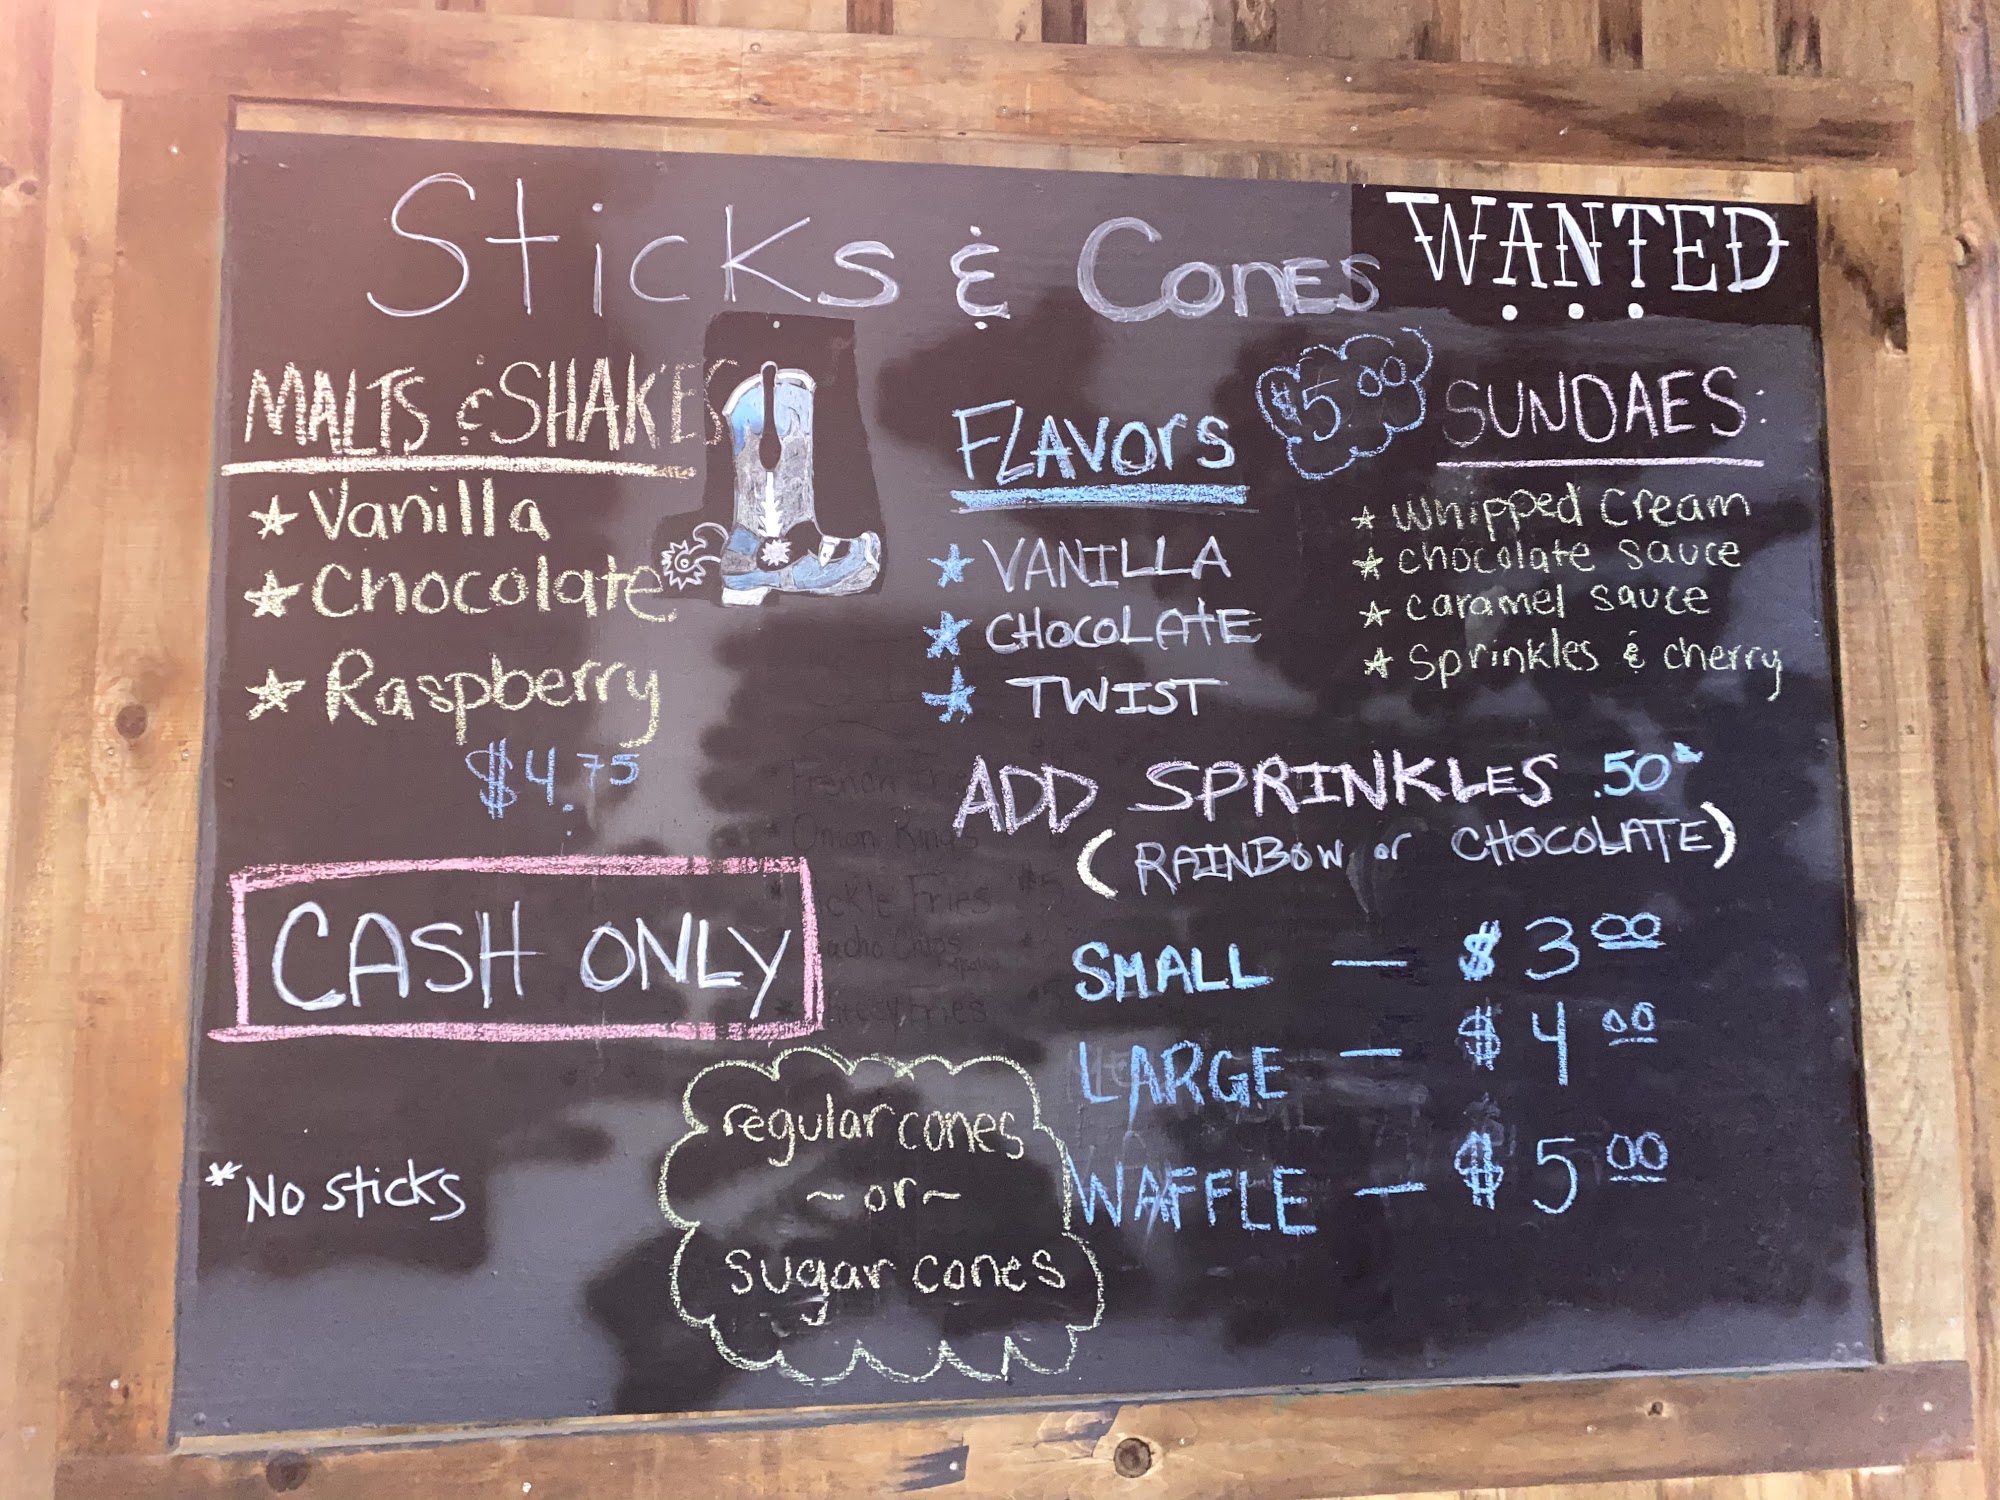 Sticks & Cones
WANTED
MALTS & SHAKES
★ Vanilla
★ Chocolate
★ Raspberry
$4.75
CASH ONLY
*No sticks
FLAVORS
★ VANILLA
★ CHOCOLATE
★ TWIST
$5.00 SUNDAES:
★ Whipped Cream
★ chocolate sauce
★ caramel sauce
★ Sprinkles & cherry
ADD SPRINKLES .50¢
(RAINBOW or CHOCOLATE)
SMALL — $3.00
LARGE — $4.00
WAFFLE — $5.00
regular cones
~or~
sugar cones
Onion Rings
Fries